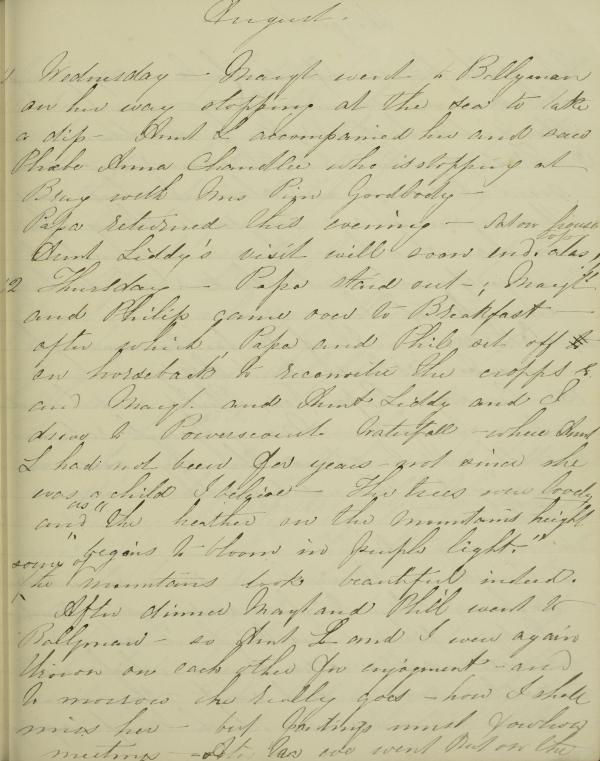 August.
1 Wednesday - Margt went to Ballyman
on her way stopping at the sea to take
a dip - Aunt L accompanied her and saw
Phoebe Anna Chandlee who is stopping at
Bray with Mrs Pim Goodbody -
Papa returned this evening -
Aunt Liddy's visit will soon end. alas!
2 Thursday - Papa staid out -; Margt
and Philip came over to Breakfast -
after which Papa and Phil set off
on horseback to reconoitre the cropps &
and Margt and Aunt Liddy and I
drove to Powerscourt Waterfall - where Aunt
L had not been for years - not since she
was a child I believe - The trees were lovely
and as "the heather on the mountains height
begins to bloom in purple light."
some of the mountains look beautiful indeed.
After dinner Margt and Phill went to
Ballyman - so Aunt L and I were again
thrown on each other for enjoyment - and
to morrow she really goes - how I shall
miss her - but partings must follow
meetings - After tea we went out on the